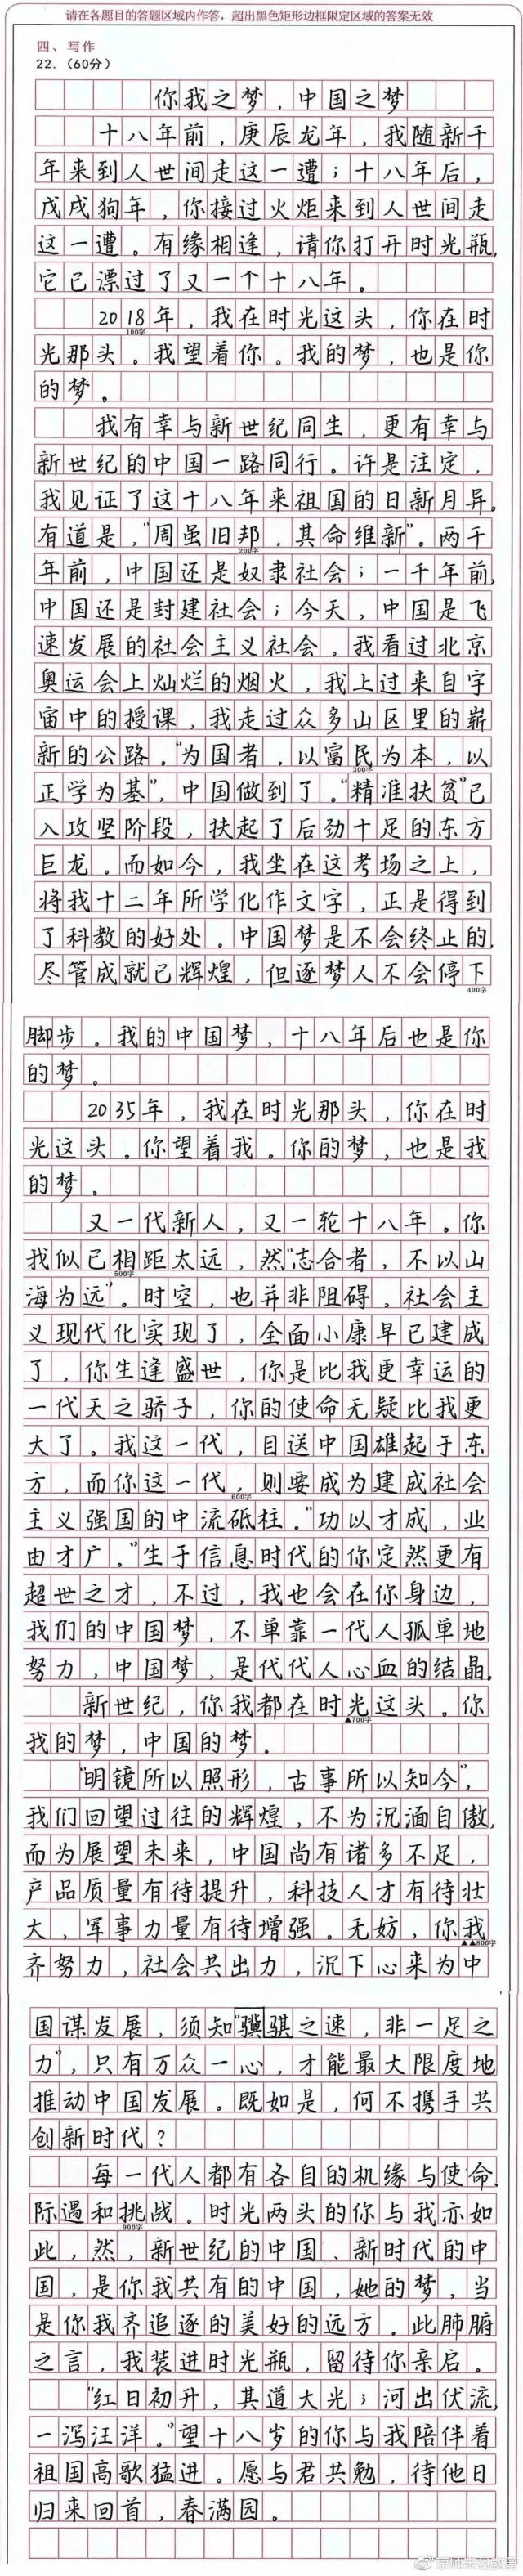 请在各题目的答题区域内作答，超出黑色矩形边框限定区域的答案无效
四、写作
22.（60分）
你我之梦，中国之梦
十八年前，庚辰龙年，我随新千
年来到人世间走这一遭；十八年后，
戊戌狗年，你接过火炬来到人世间走
这一遭。有缘相逢，请你打开时光瓶，
它已漂过了又一个十八年。
2018年，我在时光这头，你在时
100字
光那头。我望着你。我的梦，也是你
的梦。
我有幸与新世纪同生，更有幸与
新世纪的中国一路同行。许是注定，
我见证了这十八年来祖国的日新月异。
有道是，“周虽旧邦，其命维新”。两千
200字
年前，中国还是奴隶社会；一千年前，
中国还是封建社会；今天，中国是飞
速发展的社会主义社会。我看过北京
奥运会上灿烂的烟火，我上过来自宇
宙中的授课，我走过众多山区里的崭
新的公路。“为国者，以富民为本，以
300字
正学为基”，中国做到了。“精准扶贫”已
入攻坚阶段，扶起了后劲十足的东方
巨龙。而如今，我坐在这考场之上，
将我十二年所学化作文字，正是得到
了科教的好处。中国梦是不会终止的，
尽管成就已辉煌，但逐梦人不会停下
400字
脚步。我的中国梦，十八年后也是你
的梦。
2035年，我在时光那头，你在时
光这头。你望着我。你的梦，也是我
的梦。
又一代新人，又一轮十八年。你
我似已相距太远，然“志合者，不以山
500字
海为远”。时空，也并非阻碍。社会主
义现代化实现了，全面小康早已建成
了，你生逢盛世，你是比我更幸运的
一代天之骄子，你的使命无疑比我更
大了。我这一代，目送中国雄起于东
方，而你这一代，则要成为建成社会
600字
主义强国的中流砥柱。“功以才成，业
由才广。”生于信息时代的你定然更有
超世之才，不过，我也会在你身边，
我们的中国梦，不单靠一代人孤单地
努力，中国梦，是代代人心血的结晶。
新世纪，你我都在时光这头。你
▲700字
我的梦，中国的梦。
“明镜所以照形，古事所以知今”，
我们回望过往的辉煌，不为沉湎自傲，
而为展望未来，中国尚有诸多不足，
产品质量有待提升，科技人才有待壮
大，军事力量有待增强。无妨，你我
▲▲800字
齐努力，社会共出力，沉下心来为中
国谋发展，须知“骥骐之速，非一足之
力”，只有万众一心，才能最大限度地
推动中国发展。既如是，何不携手共
创新时代？
每一代人都有各自的机缘与使命，
际遇和挑战。时光两头的你与我亦如
900字
此，然，新世纪的中国、新时代的中
国，是你我共有的中国，她的梦，当
是你我齐追逐的美好的远方。此肺腑
之言，我装进时光瓶，留待你亲启。
“红日初升，其道大光；河出伏流，
一泻汪洋。”望十八岁的你与我陪伴着
祖国高歌猛进。愿与君共勉，待他日
归来回首，春满园。